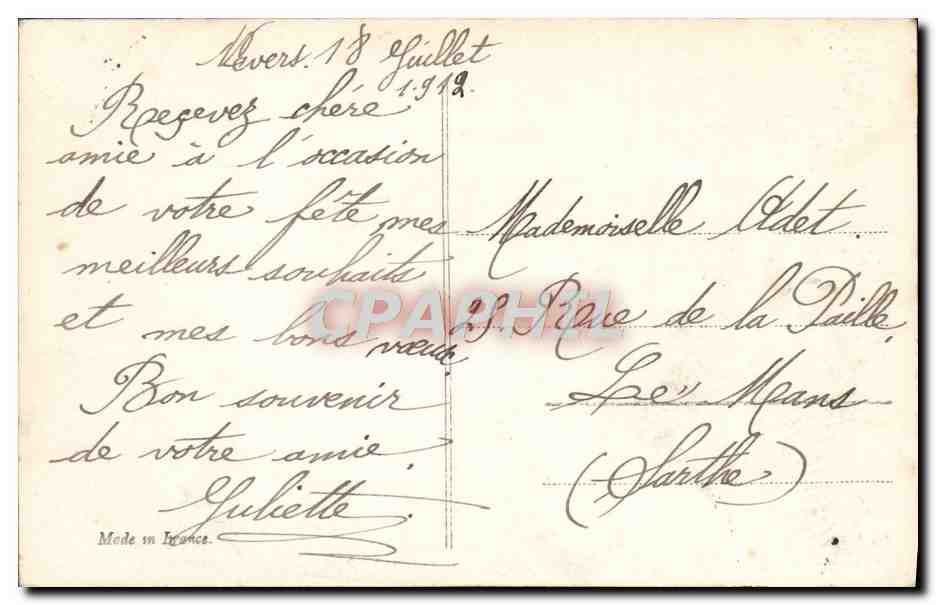 Nevers. 18 Juillet
1912.
Recevez chère
amie à l'occasion
de votre fête mes
meilleurs souhaits
et mes bons vœux.
Bon souvenir
de votre amie.
Juliette.
Made in France.
Mademoiselle Odet.
29. Rue de la Paille,
Le Mans
(Sarthe)
CPAPHIL